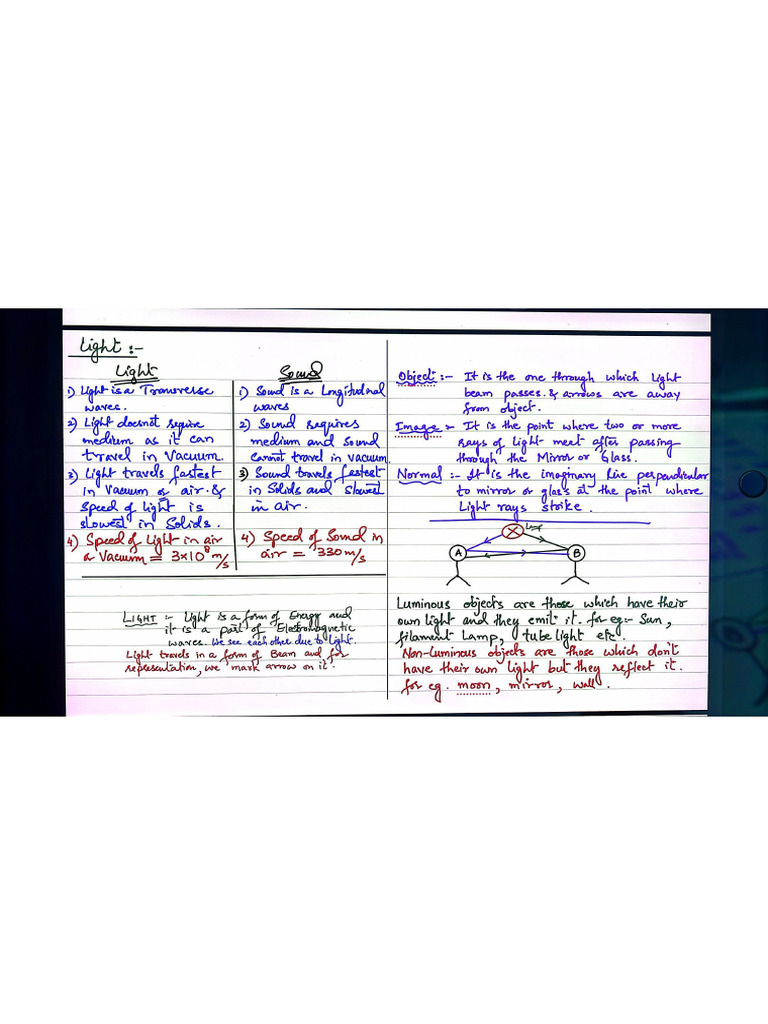 Light :-
Light
1) Light is a Transverse
waves.
2) Light doesnot require
medium as it can
travel in Vacuum.
3) Light travels fastest
in Vacuum or air. &
Speed of light is
slowest in Solids.
4) Speed of Light in air
a Vacuum = 3×10⁸ m/s
Sound
1) Sound is a Longitudinal
waves
2) Sound requires
medium and Sound
cannot travel in vacuum.
3) Sound travels fastest
in Solids and Slowest
in air.
4) Speed of Sound in
air = 330 m/s
LIGHT :- Light is a form of Energy and
it is a part of Electromagnetic
waves. We see each other due to light.
Light travels in a form of Beam and for
representation, we mark arrow on it.
Object :- It is the one through which Light
beam passes. & arrows are away
from object.
Image :- It is the point where two or more
rays of Light meet after passing
through the Mirror or Glass.
Normal :- It is the imaginary line perpendicular
to mirror or glass at the point where
Light rays strike.
Lamp
A
B
Luminous objects are those which have their
own light and they emit it. for eg:- Sun,
filament Lamp, tube light etc.
Non-Luminous objects are those which don't
have their own light but they reflect it.
for eg. moon, mirror, wall.